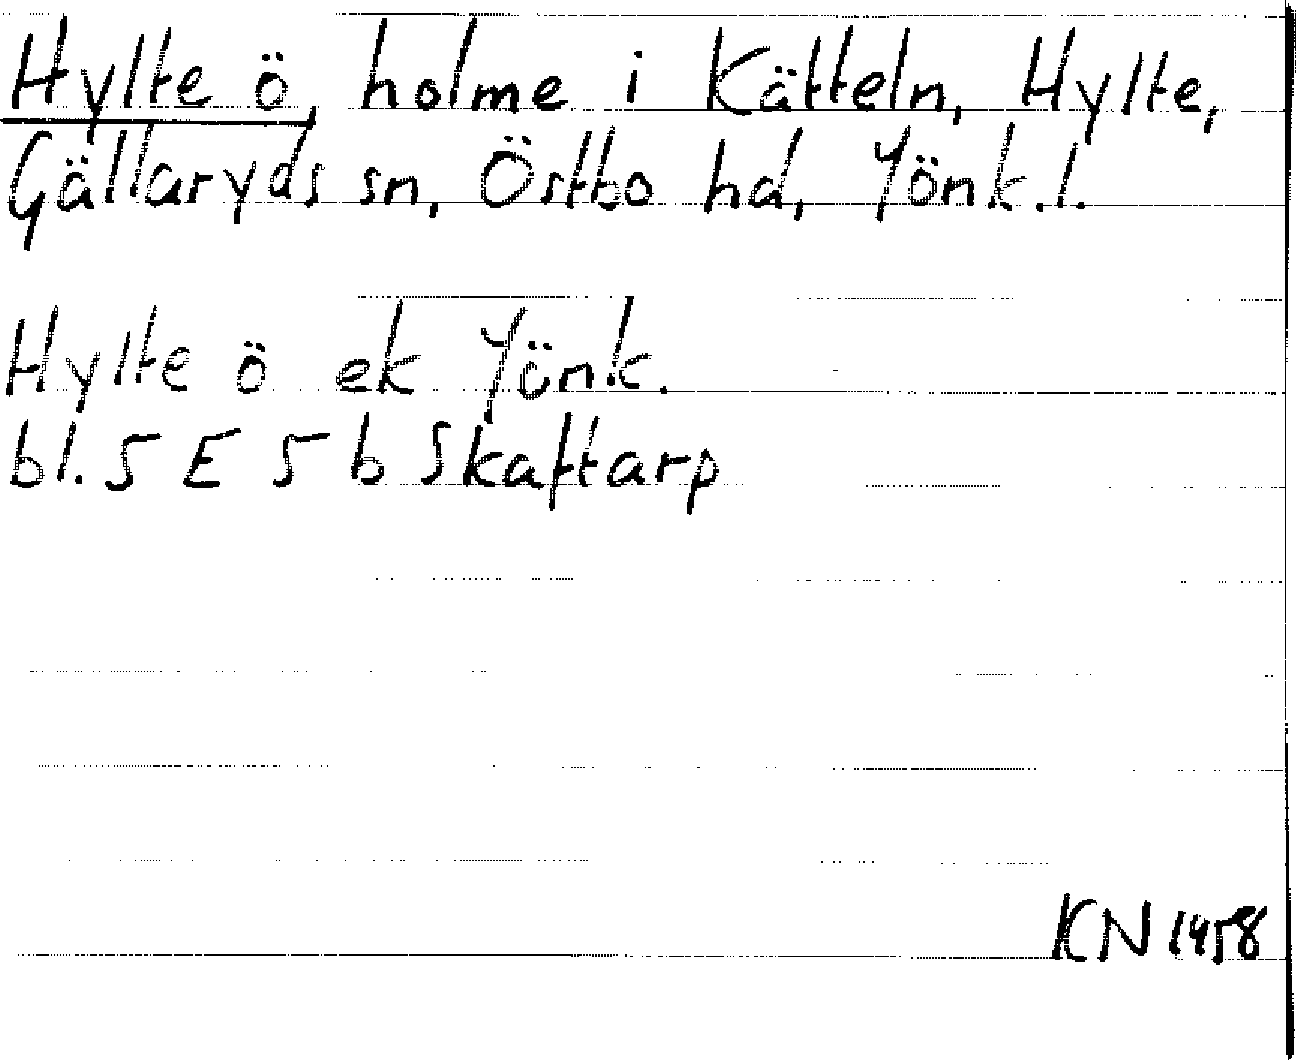 Hylte ö, holme i Kätteln, Hylte,
Gällaryds sn, Östbo hd, Jönk.l.
Hylte ö ek Jönk.
bl. 5 E 5 b Skaftarp
KN 1958